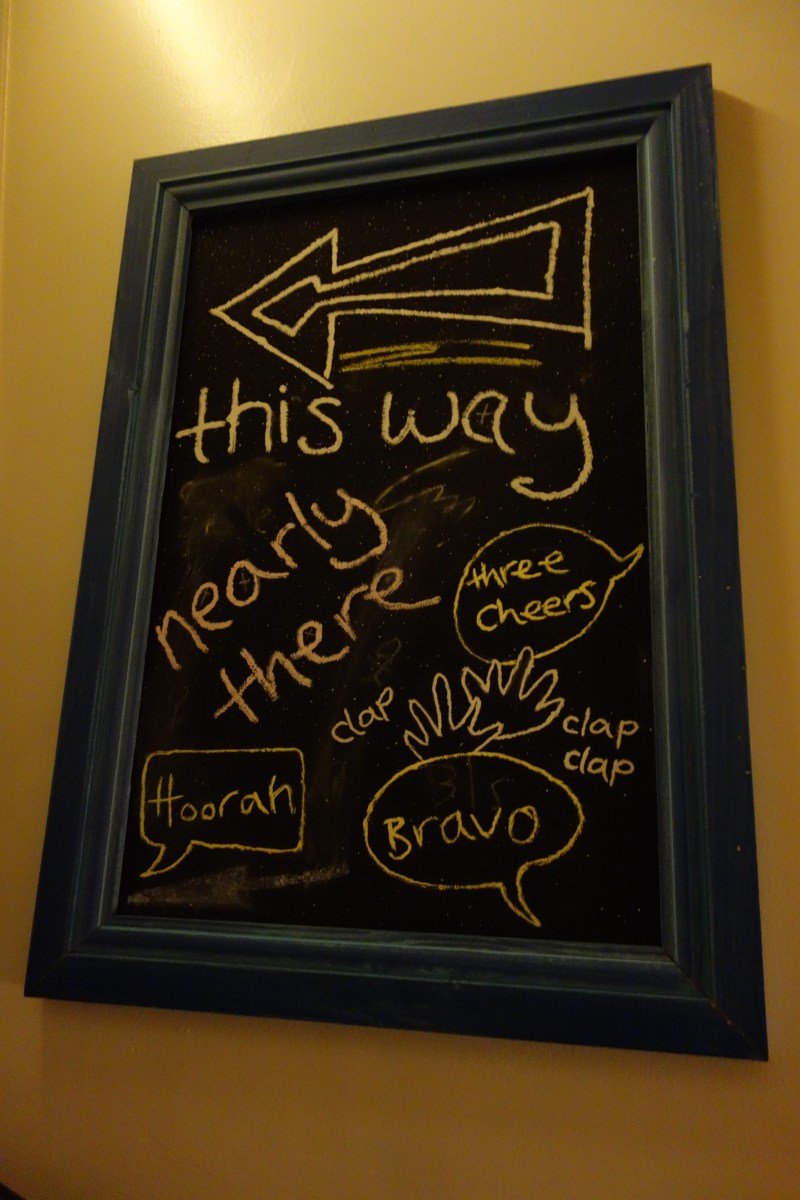 this way
nearly
there
three
cheers
clap
clap
clap
Hoorah
Bravo